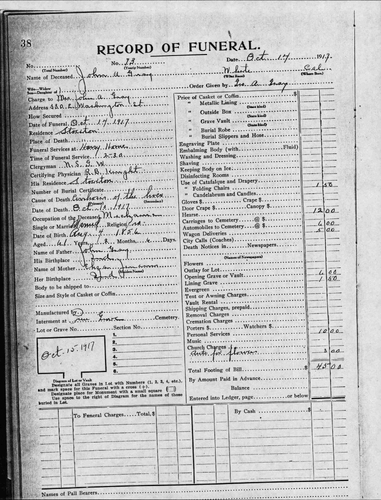 38
RECORD OF FUNERAL.
No. 32 Date Oct 17 1917.
(Total Number) (Yearly Number)
White Cal
(What Race) (Where Born)
Name of Deceased John A Gray
Order Given by
A. Gray
Charge to Mrs John A Gray
Address Washington St.
How Secured
Date of Funeral Oct 17 1917
Residence Stockton
Place of Death
Funeral Services at Henry Home
Time of Funeral Service 2:30
Clergyman
Certifying Physician R.B. Knight
His Residence Stockton
Number of Burial Certificate
Cause of Death of the liver
Date of Death Oct 1917
Occupation of the Deceased
Single or Married
Date of Birth 1856
Aged 61 Yrs. 2 Months. Days
Name of Father John Gray
His Birthplace
Name of Mother
Her Birthplace
Body to be shipped to
Size and Style of Casket or Coffin
Manufactured by
Interment at Cemetery
Lot or Grave No. Section No.
Oct. 15. 1917
1
2
3
4
5
6
Diagram of Lot or Vault
Designate all Graves in Lot with Numbers (1, 2, 3, 4, etc.),
and mark space for this Funeral with a cross (+).
Designate place for Monument with a small square
Use space to the right of Diagram for the names of those
buried in Lot.
Price of Casket or Coffin
Metallic Lining
" Outside Box
" Grave Vault
" Burial Robe
" Burial Slippers and Hose
Engraving Plate
Embalming Body (with Fluid)
Washing and Dressing
Shaving
Keeping Body on Ice
Disinfecting Rooms
Use of Catafalque and Drapery
" Folding Chairs 1 50
" Candelabrum and Candles
Gloves $ Crape $
Door Crape $ Canopy $
Hearse 12 00
Carriages to Cemetery @ $
Automobiles to Cemetery @ $
Wagon Deliveries 5 00
City Calls (Coaches)
Death Notices in Newspapers
Flowers
Outlay for Lot
Opening Grave or Vault
Lining Grave 1 50
Evergreens
Tent or Awning Charges
Vault Rental
Shipping Charges, prepaid
Removal Charges
Cremation Charges
Porters $ Watchers $
Personal Services 10 00
Music
Church Charges
Auto for flowers 3 00
Total Footing of Bill $ 45 00
By Amount Paid in Advance
Balance
Entered into Ledger, page or below.
To Funeral Charges. Total, $ By Cash $
Names of Pall Bearers.